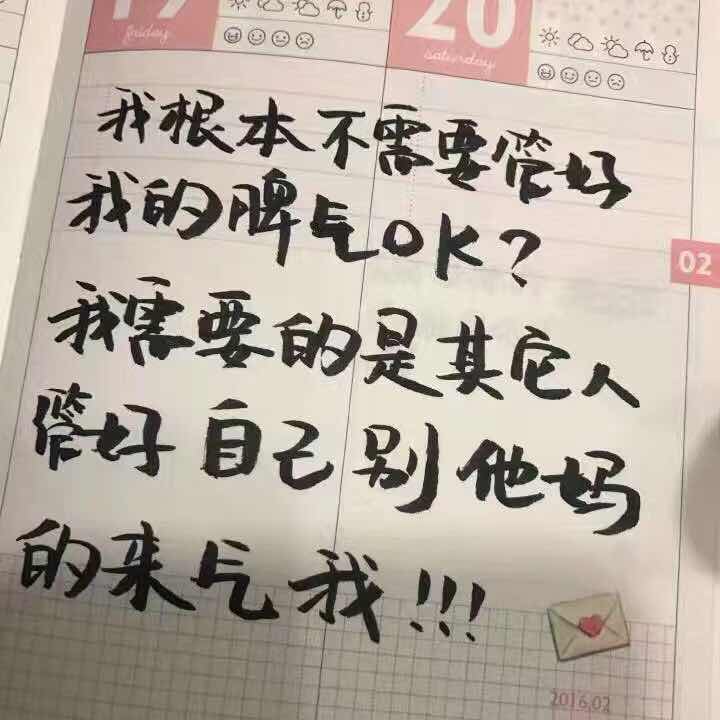 19 20
friday saturday
我根本不需要管好
我的脾气OK?
02
我需要的是其它人
管好自己别他妈
的来气我!!!
2016,02